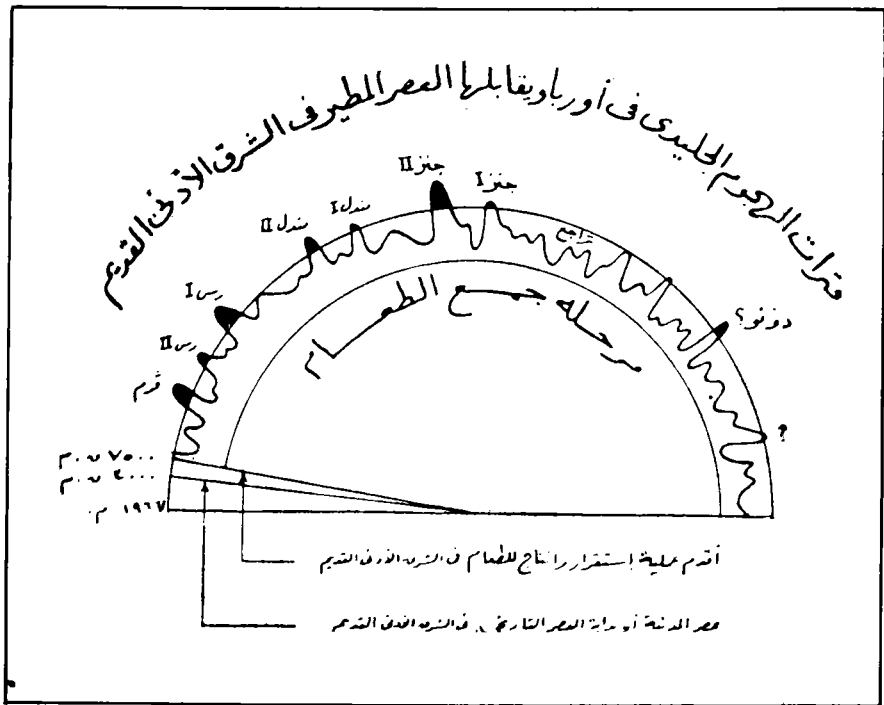 فترات الهجوم الجليدى فى أوربا ويقابلها العصر المطير فى الشرق الأدنى القديم
جنز I
جنز II
مندل I
مندل II
رس I
رس II
ڤرم
تراجع
دونو؟
؟
مرحله جمع الطعام
٧٥٠٠ ق.م
٣٠٠٠ ق.م
١٩٦٧ م.
أقدم عملية إستقرار وانتاج للطعام فى الشرق الأدنى القديم
عصر المدنية أو بداية العصر التاريخى فى الشرق الأدنى القديم